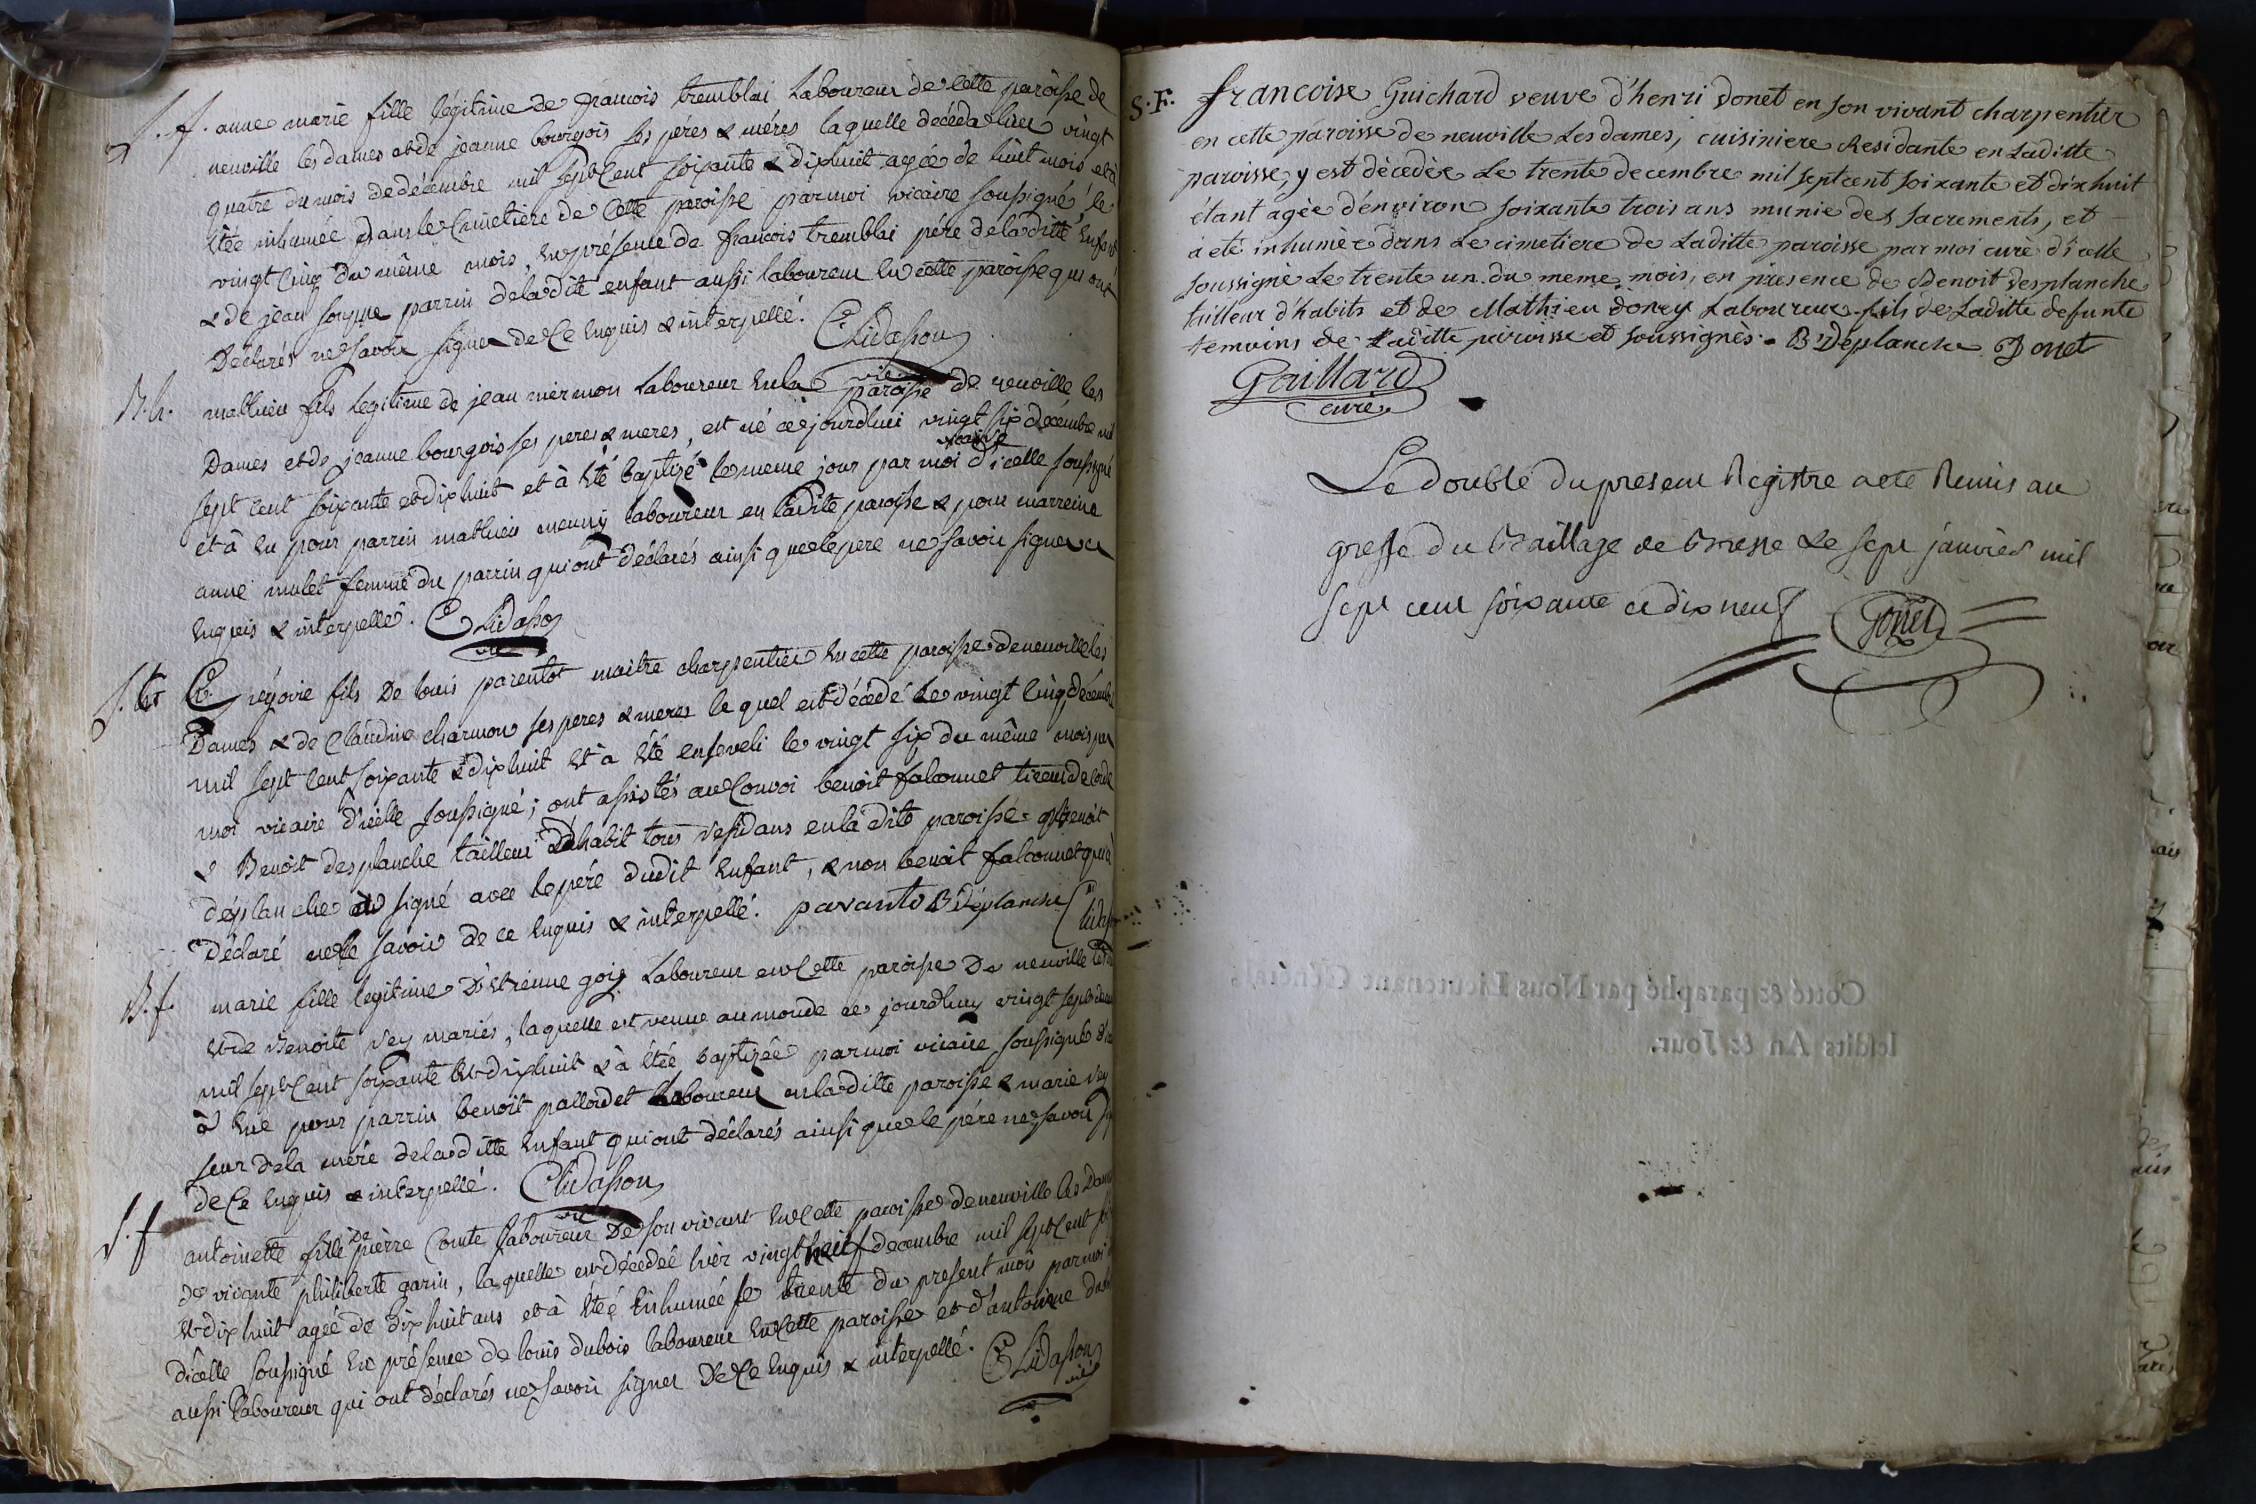 S. f. anne marie fille légitime de francois tremblai Laboureur de Cette paroisse de
neuville les dames et de jeanne bourgois ses péres & méres laquelle décéda hier vingt
quatre du mois de décembre mil sept Cent soixante & dixhuit agée de huit mois et à
étée inhumée dans le Cimetiere de Cette paroisse par moi vicaire soussigné le
vingt Cinq du même mois, en présence de francois tremblai pére de la ditte enfant
& de jean parrin de la dite enfant aussi laboureur en cette paroisse qui ont
Déclarés ne savoir signer de Ce enquis & interpellé. Chidasson
vic.
B. h. mathieu fils Legitime de jean mermon Laboureur en la paroisse de neuville les
Dames et de jeanne bourgois ses peres & meres, est né ce jourdhui vingt six décembre mil
sept cent soixante et dixhuit et à été baptizé le meme jour par moi vicaire d'icelle soussigné
et à eu pour parrin mathieu laboureur en la dite paroisse & pour marreine
anne mulet femme du parrin qui ont déclarés ainsi que le pere ne savoir signer de ce
enquis & interpellé. Chidasson
vic
S. h. Grégoire fils De louis parentot maitre charpentier en cette paroisse de neuville les
Dames & de Claudine charmon ses peres & meres le quel est décédé le vingt Cinq décembre
mil sept Cent soixante & dixhuit et à été enseveli le vingt six du même mois par
moi vicaire d'icelle soussigné; ont assistés au Convoi benoit falconnet tireur de corde
& Benoit desplanche tailleur d'habit tous résidans en la dite paroisse benoit
déplanche a signé avec le pére dudit enfant, & non benoit falconnet qui a
Déclaré ne le savoir de ce enquis & interpellé. B déplanche Chidasson
B. f. marie fille legitime D'étienne goij Laboureur en Cette paroisse De neuville les
et de Benoite vey mariés, laquelle est venue au monde ce jourdhuy vingt sept
mil sept Cent soixante et dixhuit & à étée baptizée par moi vicaire soussigné
à eue pour parrin benoit pallordet laboureur en la ditte paroisse & marie vey
seur de la mére de la ditte enfant qui ont déclarés ainsi que le pére ne savoir
de Ce enquis & interpellé. Chidasson
vic
S. f antoinette fille De pierre Comte Laboureur De son vivant en Cette paroisse de neuville les Dames
de vivante philiberte garin, laquelle est décédée hier vingt neuf decembre mil sept Cent
et dix huit agée de dixhuit ans et à étée inhumée le trente du present mois par moi
dicelle soussigné en présence de louis dubois laboureur en Cette paroisse et d'antoine
aussi laboureur qui ont déclarés ne savoir signer De Ce enquis & interpellé. Chidasson
vic
S. F. francoise Guichard veuve d'henri donet en son vivant charpentier
en cette paroisse de neuville les dames, cuisiniere Residante en laditte
paroisse, y est décedée Le trente decembre mil sept cent soixante et dix huit
étant agée d'environ soixante trois ans munie des sacrements, et
a eté inhumée dans Le cimetiere de Laditte paroisse par moi curé d'icelle
soussigné Le trente un du meme mois, en présence de Benoit desplanche
tailleur d'habits et de Mathieu Laboureur fils de Laditte defunte
temoins de Laditte paroisse et soussignés. B Déplanche Donet
Gaillard
curé
Le double du present Registre a eté Remis au
greffe du Bailliage de Bresse Le sept janvier mil
sept cent soixante et dix neuf
Cotté & paraphé par Nous Lieutenant Général,
lesdits An & Jour.